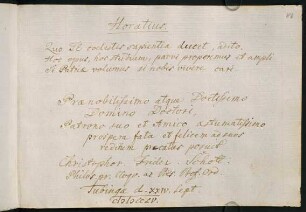 Horatius.
Quo Te coelestis sapientia duceret, ito.
Hoc opus, hoc studium, parvi properemus et ampli
Si Patriæ volumus si nobis vivere cari.
Prænobilissimo atque Doctissimo
Domino Doctori,
Patrono suo et Amico æstumatissimo
prospera fata et felicem ad suos
reditum precatus posuit
Christophor. Frider. Schott.
Philos. pr. Prof. Ord.
Tubingæ d. XXIV. Sept.